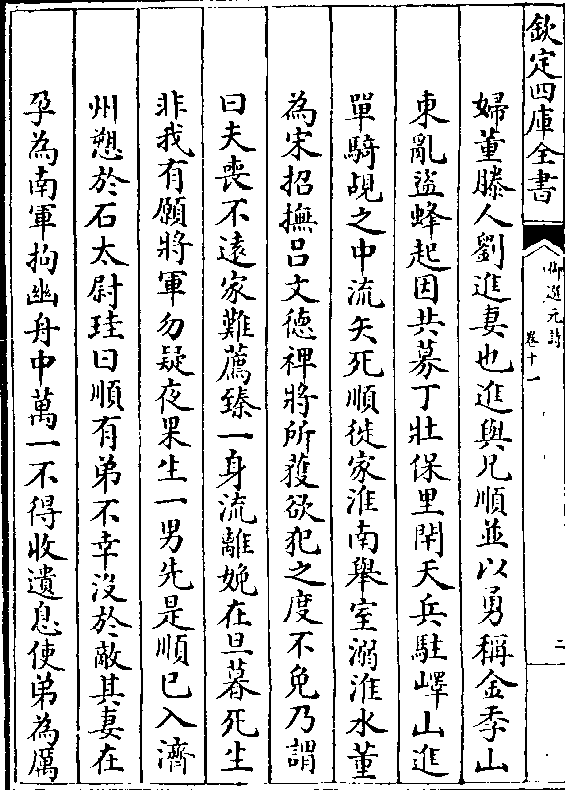 欽定四庫全書
御選元詩
卷十一
二
婦董滕人劉進妻也進與兄順並以勇稱金季山
東亂盜蜂起因共募丁壯保里閈天兵駐嶧山進
單騎覘之中流矢死順徙家淮南舉室溺淮水董
為宋招撫吕文德禆將所獲欲犯之度不免乃謂
曰夫喪不遠家難薦臻一身流離娩在旦暮死生
非我有願將軍勿疑夜果生一男先是順已入濟
州愬於石太尉珪曰順有弟不幸沒於敵其妻在
孕為南軍拘幽舟中萬一不得收遺息使弟為厲